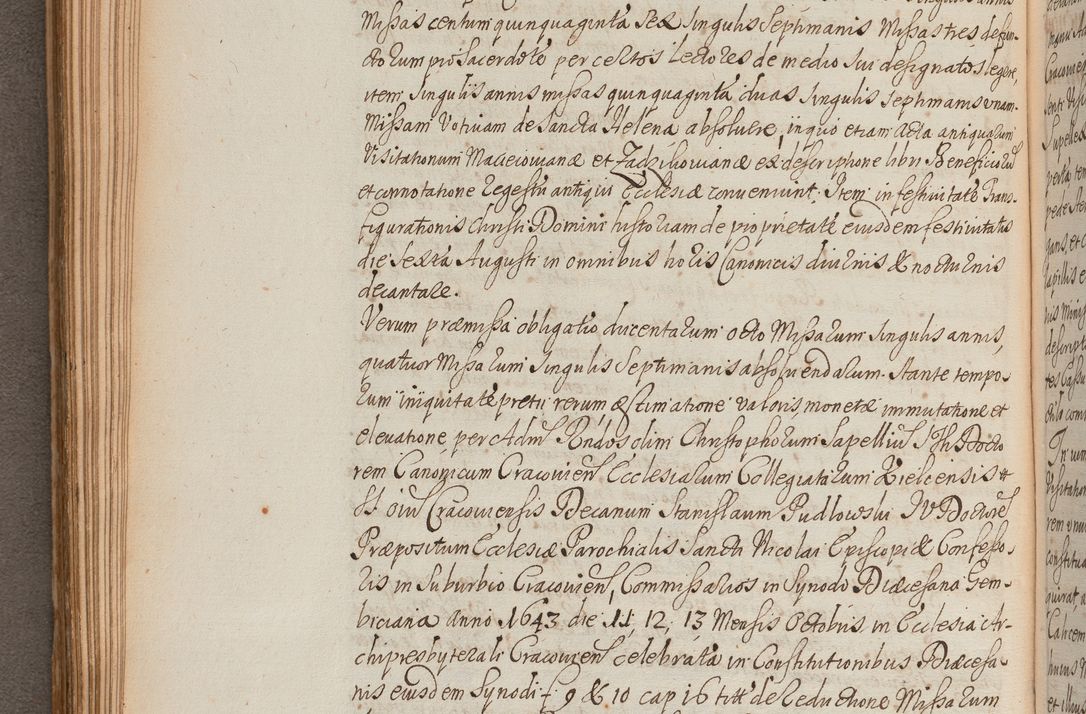 Missas centum quinquaginta sex singulis septimanis Missas tres defun-
ctorum pro Sacerdote per certos Lectores de medio sui designatos legere,
item singulis annis missas quinquaginta duas singulis septimanis unam
Missam Votivam de Sancta Helena absolvere, in quo etiam acta antiquarum
Visitationum Macieiovianæ et Zadzikovianæ ex descriptione libri Beneficiorum
et connotatione regestri antiqui Ecclesiæ conveniunt. Item in festivitate Trans-
figurationis Christi Domini historiam de proprietate eiusdem festivitatis
die sexta Augusti in omnibus horis Canonicis diurnis & nocturnis
decantare.
Verum præmissa obligatio ducentarum octo Missarum singulis annis,
quatuor Missarum singulis septimanis absolvendarum. Stante tempo-
rum iniquitate pretii rerum æstimatione valoris monetæ immutatione et
elevatione per Adm Rndos olim Christophorum Sapellium S Th Docto
rem Canonicum Cracovien Ecclesiarum Collegiatarum Kielcensis &
Cracoviensis Decanum Stanislaum Pudlowski IV Doctore
Præpositum Ecclesiæ Parochialis Sancti Nicolai Episcopi & Confesso-
ris in Suburbio Cracovien, Commissarios in Synodo Diæcesana Gem-
biciana anno 1643 die 11, 12, 13 Mensis Octobris in Ecclesia Ar-
chipresbyterali Cracovien celebrata in Constitutionibus Diæcesa-
nis eiusdem Synodi f. 9 & 10 cap 16 titt de reductione Missarum